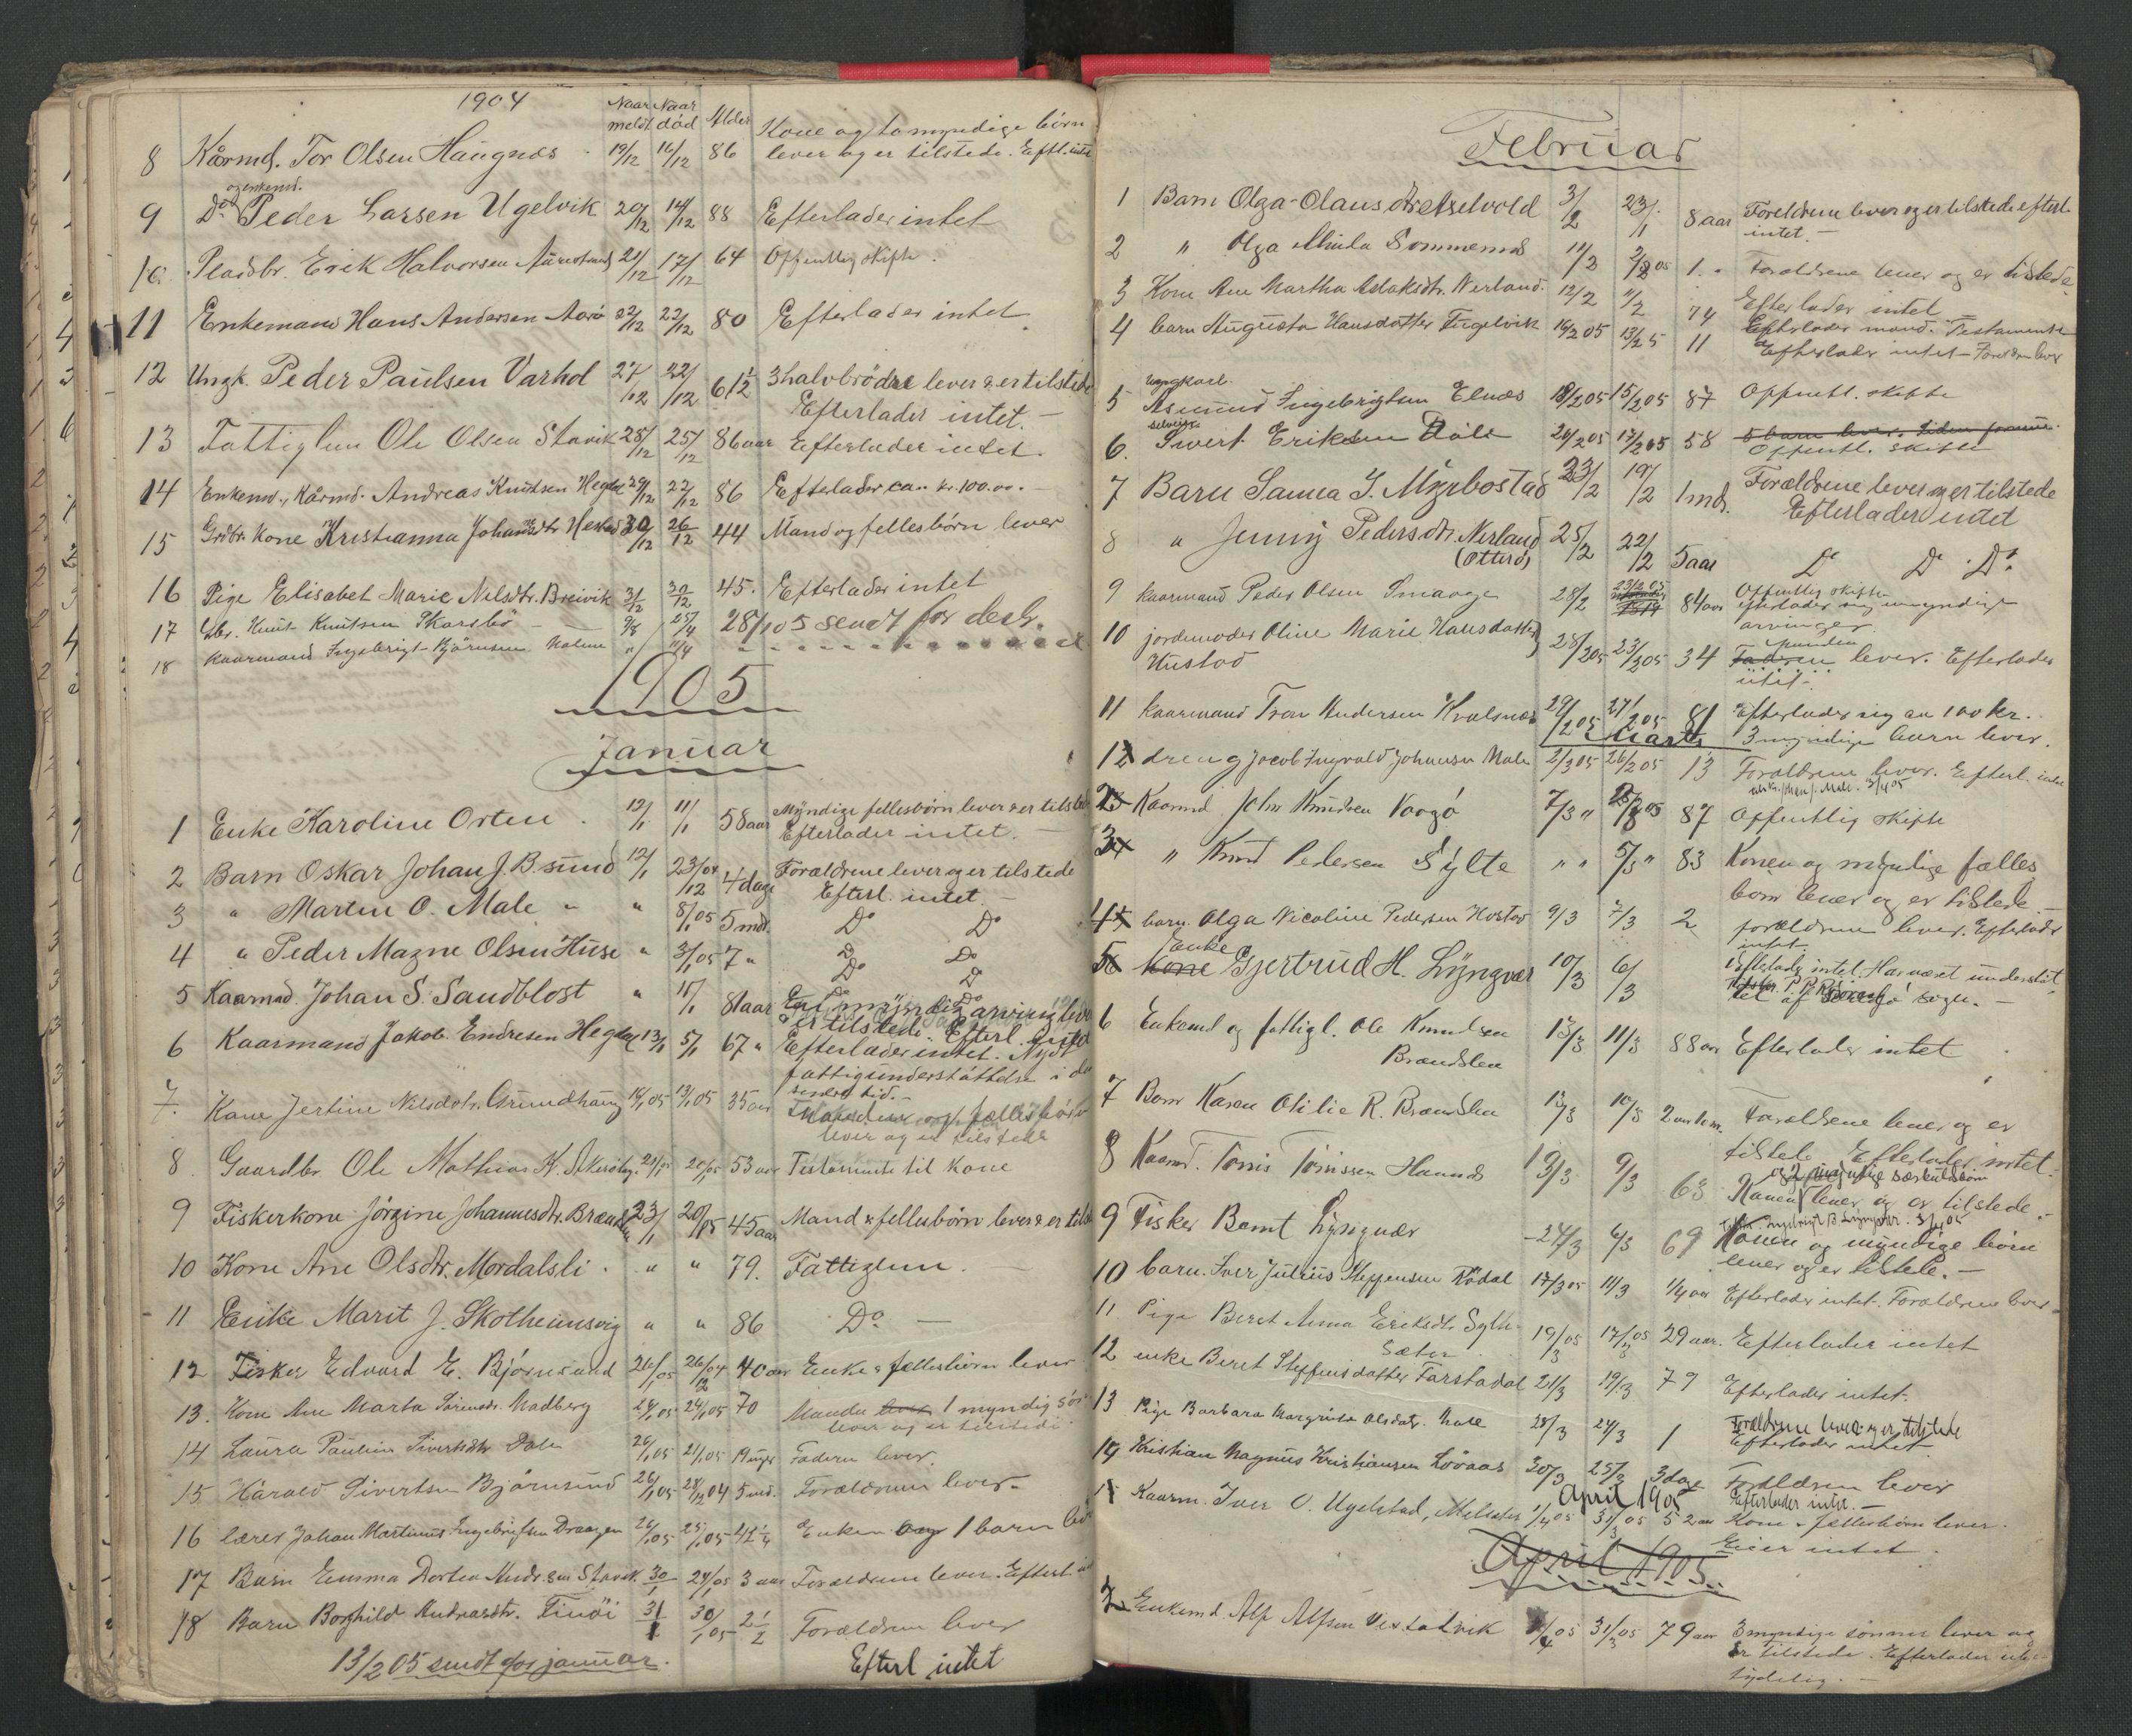 1904
Naar meldt Naar död Alder
Kone og to myndige børn
8 Kårmd. Tor Olsen Haugnæs 19/12 16/12 86 lever og er tilstede. Eftl. intet
og enkemd.
9 Do Peder Larsen Ugelvik 20/12 14/12 88 Efterlader intet
10. Pladsbr. Erik Halvorsen 21/12 17/12 64 Offentlig skifte.
11 Enkemand Hans Andersen Aarö 22/12 22/12 80 Efterlader intet
12 Ungk. Peder Paulsen Varhol 27/12 22/12 61 1/2 3 halvbrödre lever & er tilstede
Efterlader intet. –
13 Fattiglem Ole Olsen Stavik 28/12 25/12 86 aar Efterlader intet.
14 Enkemd., Kårmd. Andreas Knutsen Hegdal 29/12 22/12 86 Efterlader ca. kr. 100.00.
15 Grdbr. Kone Kristianna Johansdtr Hestad 30/12 26/12 44 Mand og fellesbörn lever
16 Pige Elisabet Marie Nilsdtr. Breivik 31/12 30/12 45. Efterlader intet
17 Gbr. Knut Knutsen Skarsbö 9/8 25/4 28/1 05 sendt for desbr.
18 Kaarmand Ingebrigt Björnsen Malme " 11/4
1905
Januar
1 Enke Karoline Orten. 12/1 11/1 58 aar Myndige fellesbörn lever & er tilstede
Efterlader intet. –
2 Barn Oskar Johan J. B.sund 12/1 23/12 04 4 dage Forældrene lever og er tilstede
Efterl. intet. –
3 " Martin O. Male " " 8/1 05 5 md. Do Do
4 " Peder Magne Olsen Huse " 3/1 05 7 " Do Do
Do Do
5 Kaarmd. Johan S. Sandblost " 11/1 81 aar En myndig arving lever
& er tilstede. Efterl. intet
6 Kaarmand Jakob Endresen Hegdal 13/1 5/1 67 " Efterlader intet. Nydt
fattigunderstöttelse i den
senere tid. –
7. Kone Jertine Nilsdotr. Grundhaug 16/1 05 13/1 05 35 aar Manden og fællesbörn
lever og er tilstede
8 Gaardbr. Ole Mathias K. 21/1 05 20/1 05 53 aar Testamente til Kone
9 Fiskerkone Jörgine Johannesdtr. 23/1 20/1 05 45 aar Mand & fellesbörn lever & er tilstede
10 Kone Ane Olsdtr. Mordalsli. " " 79. Fattiglem. –
11 Enke Marit J. Skotheimsvig " " 86 Do –
12 Fisker Edvard E. Björnsund 26/1 05 26/12 04 40 aar Enke & fællesbörn lever
13. Kone Ane Marta Sörensdr. Madberg 26/1 05 24/1 05 70 Manden lever 1 myndig sön
lever og er tilstede
14 Laura Pauline Sivertsdtr Dale 26/1 05 21/1 05 19 uger Faderen lever.
15 Harald Sivertsen Björnsund 26/1 05 28/12 04 5 md. Forældrene lever.
16 lærer Johan Martinus Ingebrigtsen Draagen 26/1 05 25/1 05 42 1/4 Enken og 1 barn lever
17 Barn Emma Dortea Andr.sen Stavik. 30/1 24/1 05 3 aar Forældrene lever. Efterl. intet
18 Barn Borghild Andreasdtr. Finöi 31/1 30/1 05 2 1/2 Forældrene lever
13/2 05 sendt for januar. Efterl intet
Februar
1 Barn Olga Clausdtr Aselvold 3/2 23/1 8 aar Foreldrene lever og er tilstede efterl.
intet. –
2 " Olga Alvida Sommernes 11/2 2/2 05 1. " Foreldrene lever og er tilstede
3 Kone Ane Martha Aslaksdtr. Nerland. 12/2 11/2 74 Efterlader intet
Efterlader mand. Testamente
4 barn Augusta Hansdatter Fugelvik 16/2 05 13/2 5 11 Efterlader intet – Foreldre lever
Ungkarl.
5 Asmund Ingebrigtsen Elnæs 18/2 05 15/2 05 87 Offentl. skifte
selveier
6. Sivert Eriksen Dale 20/2 05 17/2 05 58 5 barn lever.
Offentl. skifte
7 Barn Sanna J. Myrbostad 23/2 19/2 1 md. Forældrene lever og er tilstede
Efterlader intet
8 " Jenny Pedersdtr. Nerland 25/2 22/2 5 aar Do Do Do
(Otterö)
9 kaarmand Peder Olsen Smaage 28/2 23/2 05 84 aar Offentlig skifte
efterlader sig umyndige
arvinger
10 jordemoder Oline Marie Hansdatter 28/2 05 23/2 05 34 Manden
Hustad Faderen lever. Efterlader
intet.
11 kaarmand Tron Andersen Kvalsnæs 29/2 05 27/2 05 81 Efterlader sig ca 100 kr.
Marts 3 myndige barn lever.
12 dreng Jacob Ingvald Johansen Male 2/3 05 26/2 05 13 Foreldrene lever. Efterl. intet
2 Kaarmd John Knudsen Vaagö 7/3 " 87 Offentlig skifte
3 " Knud Pedersen Sylte " " 5/3 " 83 Konen og myndige fælles
børn lever og er tilstede
4 barn Olga Nicoline Pedersen Hostad 9/3 7/3 2 forældrene lever. Efterlader
intet
Enke
5 Kone Gjertrud H. Lyngvær 10/3 6/3 Efterlader intet. Har været understöt-
tet af sogn. –
6 Enkemd og fattigl. Ole Knudsen 13/3 11/3 88 aar Efterlader intet
Brandslen
7 Barn Karen Otilie R. Brandslen 13/3 10/3 2 aar Forældrene lever og er
tilstede Efterlader intet.
og 2 myndige særkuldsbörn
8 Kaarmd. Tönis Tönissen Haunes 19/3 9/3 63 Konen lever og er tilstede. –
9 Fisker Bernt Lyngvær 24/3 6/3 69 Konen og myndige börn
lever og er tilstede. –
10 barn. Iver Julius Steffensen Rödal 17/3 05 11/3 1/4 aar Efterlader intet. Forældrene lever
11 Pige Beret Anna Eriksdtr Sylte 19/3 05 17/3 05 29 aar. Efterlader intet
Sæter
12 enke Beret Steffensdatter Farstadal 21/3 19/3 79 Efterlader intet.
13 Pige Barbara Margrite Olsdatr. Male 28/3 24/3 1 Forældrene lever og er tilstede
Efterlader intet
14 Kristian Magnus Kristiansen Lövaas 30/3 25/3 3 dage Foreldrene lever
April 1905 Efterlader intet. –
1 Kaarm. Iver O. Ugelstad, 1/4 05 31/3 05 52 aar Kone & fellesbörn lever.
Eier intet.
April 1905
2 Enkemd. Alf Alfsen Vestadvik 1/4 05 31/3 05 79 aar 3 myndige sönner lever og
er tilstede. Efterlader ube-
tydelig. –